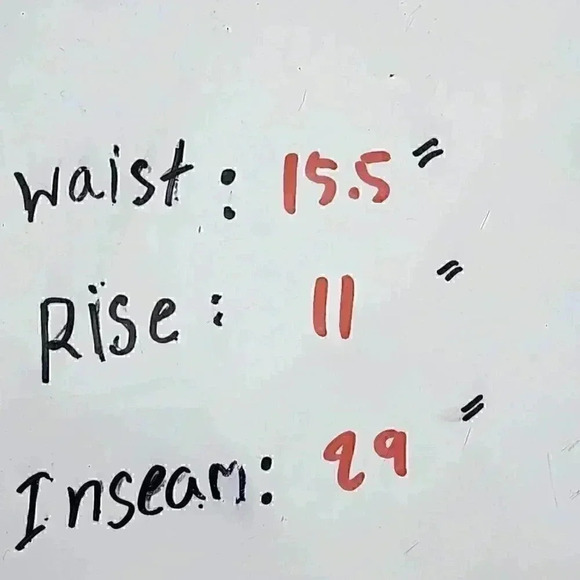 waist: 15.5"
Rise: 11"
Inseam: 29"